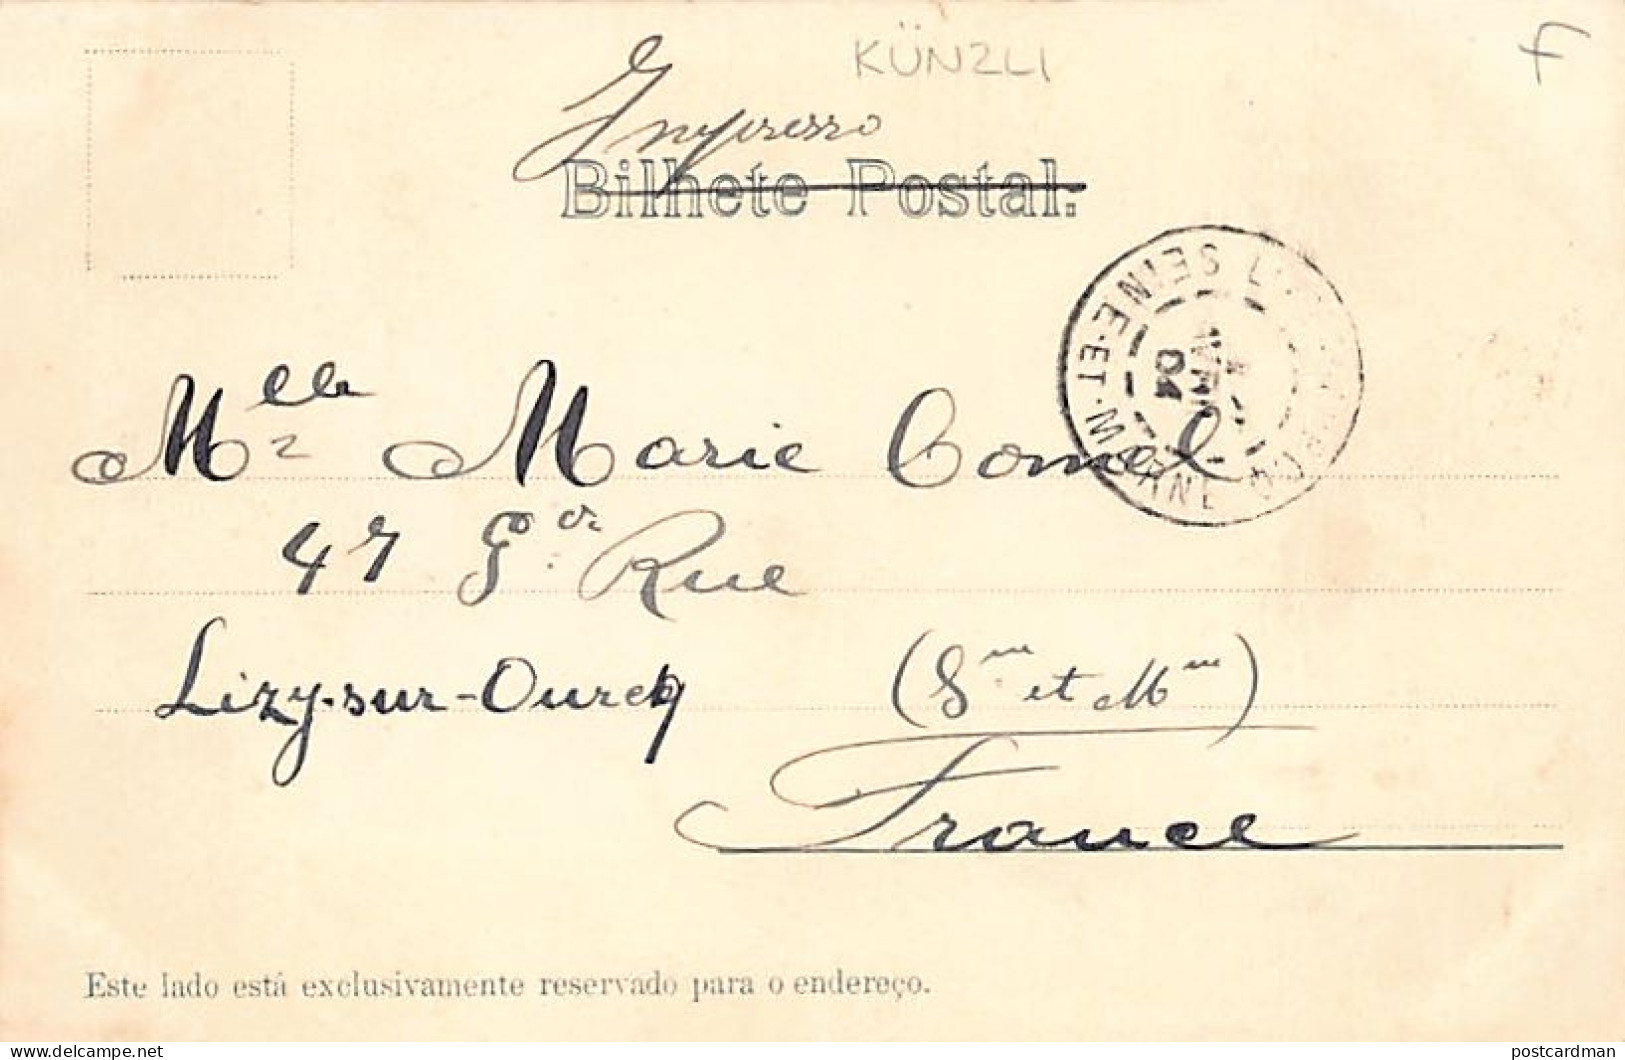 KÜNZLI
F
Impresso
Bilhete Postal.
SEINE-ET-MARNE
AVRIL
04
Mlle Marie Comel
47 Gde Rue
Lizy-sur-Ourcq (Sne et Mne)
France
Este lado está exclusivamente reservado para o endereço.
www.delcampe.net
postcardman